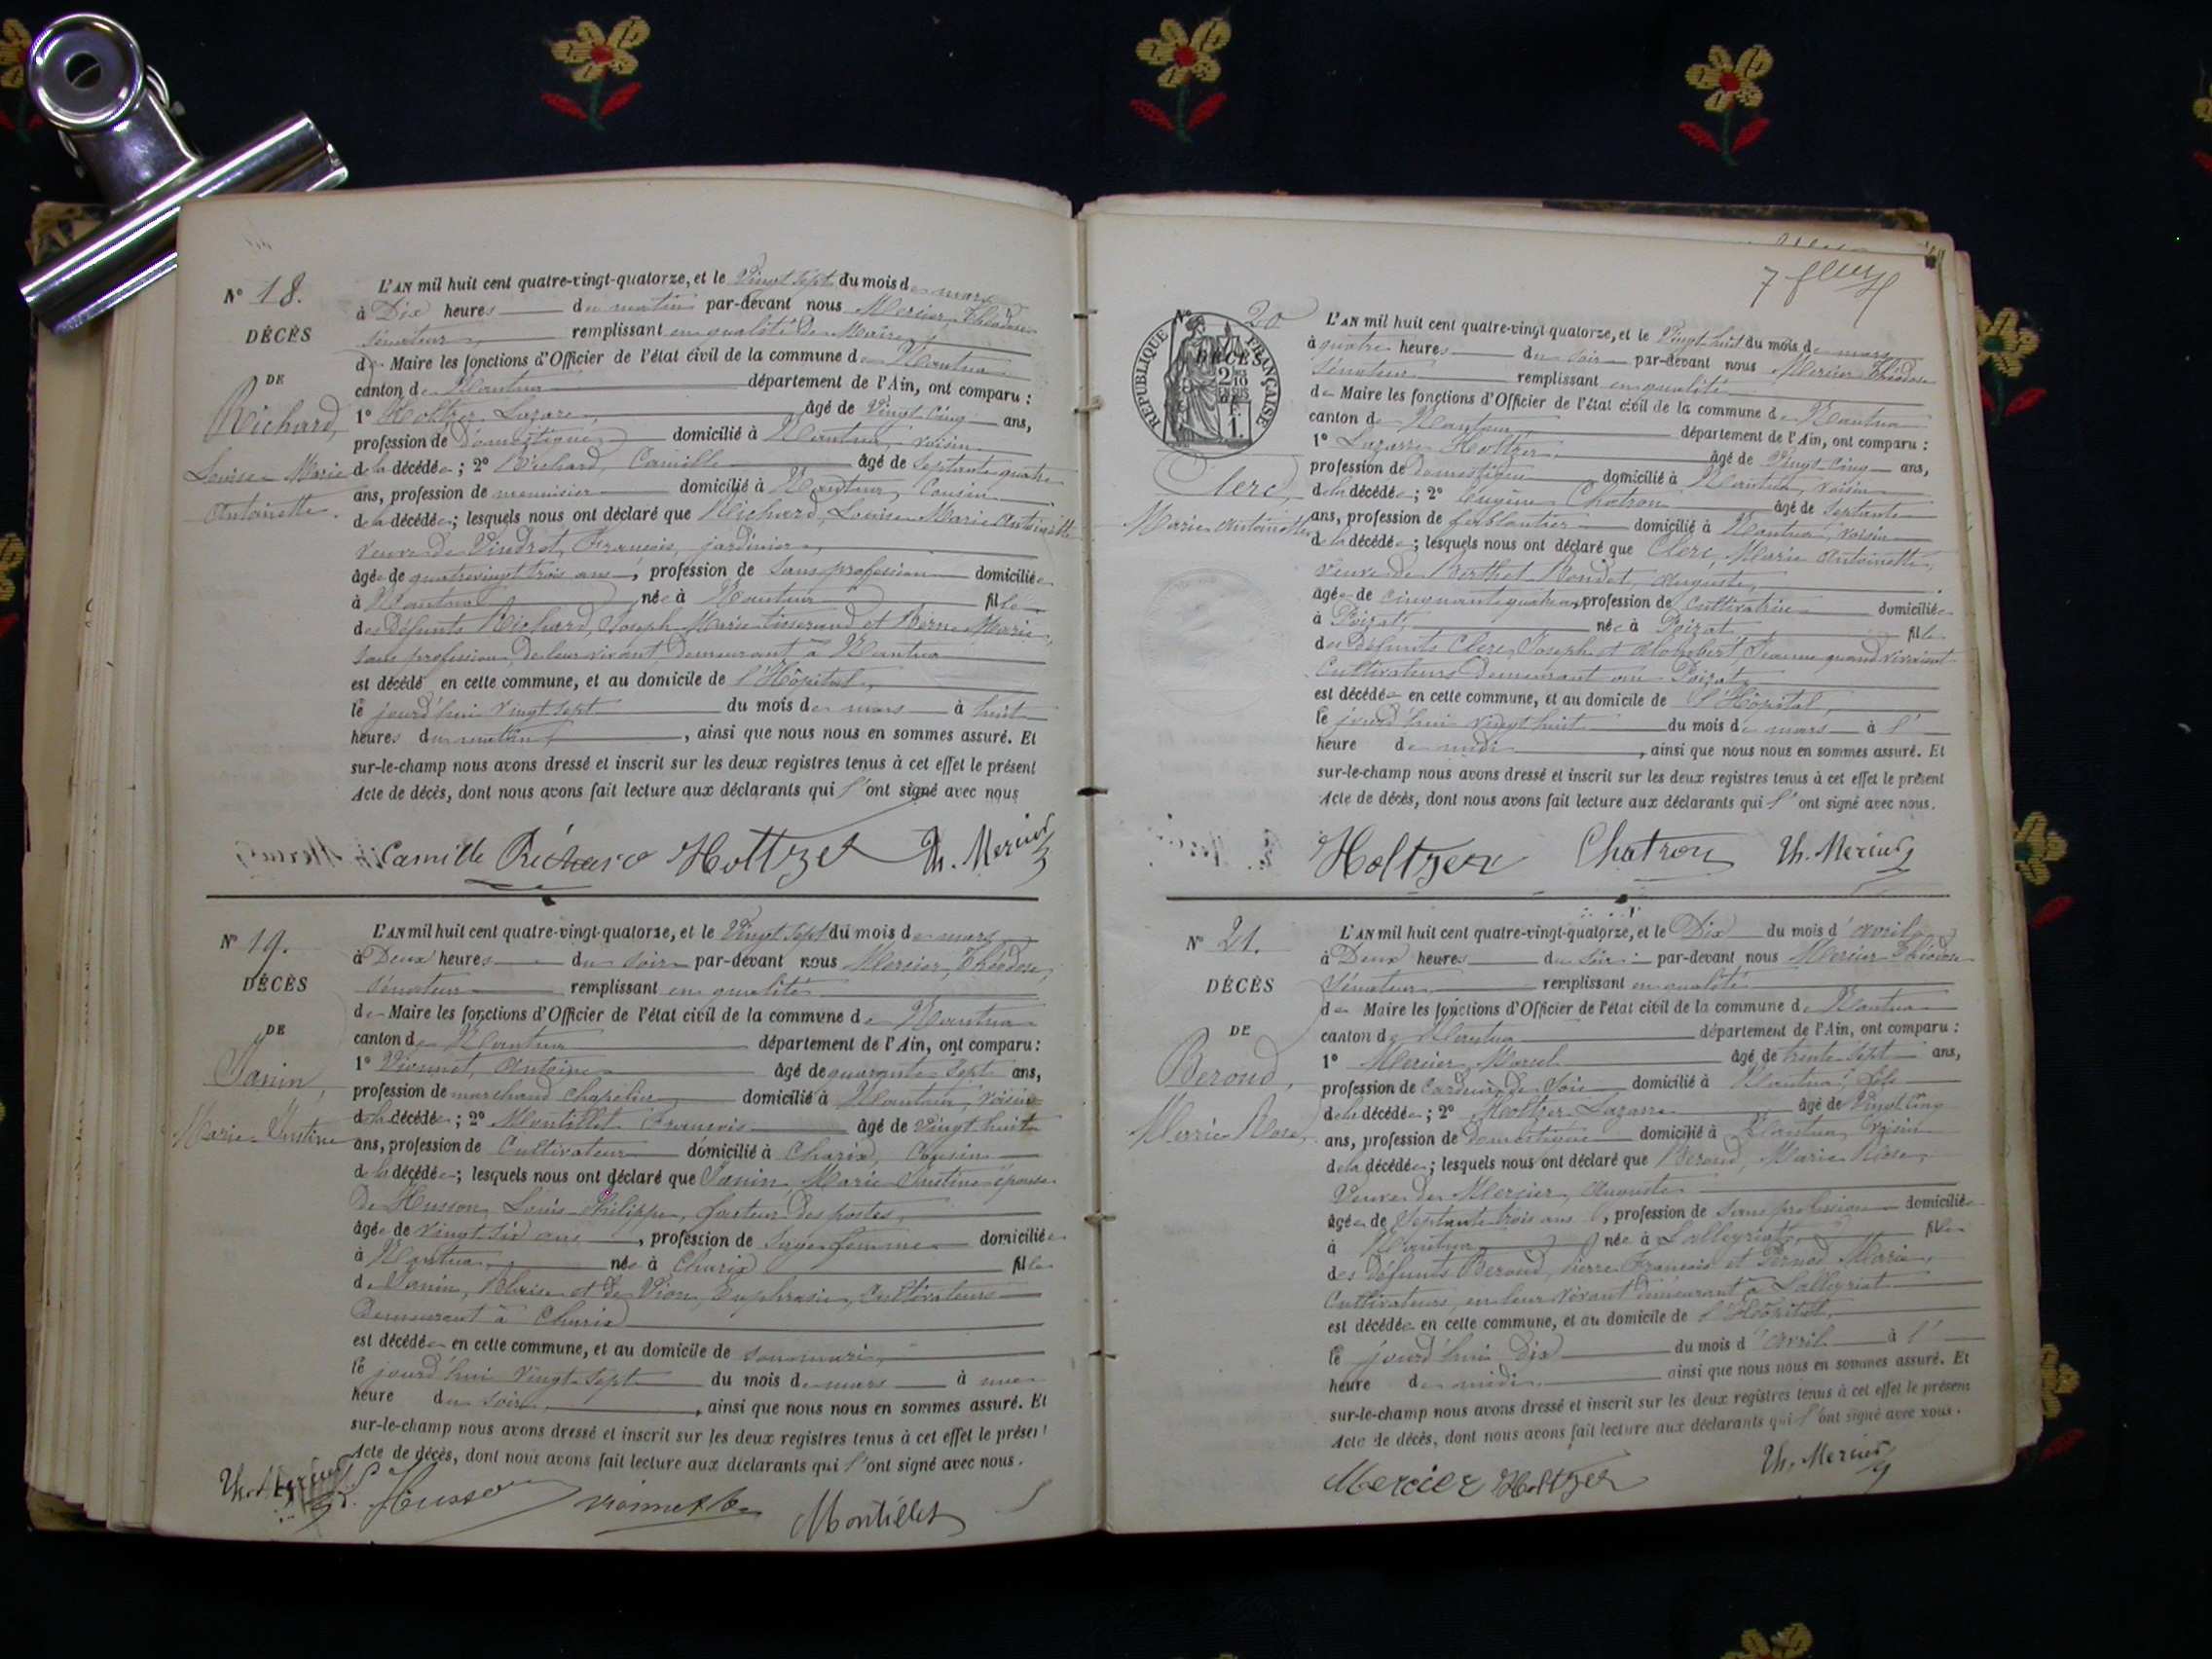 N° 18.
DÉCÈS
DE
Richard,
Louise Marie
Antoinette.
L'AN mil huit cent quatre-vingt-quatorze, et le Vingt sept du mois de mars
à Dix heures du matin par-devant nous Mercier, Théodose
Sénateur, remplissant en qualité de Maire,
de Maire les fonctions d'Officier de l'état civil de la commune de Nantua
canton de Nantua département de l'Ain, ont comparu :
1° Holtzer Lazare âgé de Vingt Cinq ans,
profession de Domestique domicilié à Nantua, voisin
de la décédée ; 2° Richard, Camille âgé de Septante quatre
ans, profession de menuisier domicilié à Nantua, Cousin
de la décédée ; lesquels nous ont déclaré que Richard, Louise Marie Antoinette
veuve de Vindret, François, jardinier,
âgée de quatrevingt trois ans, profession de Sans profession domiciliée
à Nantua née à Nantua fille
des Défunts Richard, Joseph Marie tisserand et Berne Marie,
sans profession, de leur vivant, demeurant à Nantua
est décédé en cette commune, et au domicile de l'Hôpital,
le jourd'hui Vingt sept du mois de mars à huit
heures du matin, ainsi que nous nous en sommes assuré. Et
sur-le-champ nous avons dressé et inscrit sur les deux registres tenus à cet effet le présent
Acte de décès, dont nous avons fait lecture aux déclarants qui l'ont signé avec nous
Camille Richard Holtzer Th. Mercier
N° 19.
DÉCÈS
DE
Janin,
Marie Justine
L'AN mil huit cent quatre-vingt-quatorze, et le Vingt sept du mois de mars
à Deux heures du soir par-devant nous Mercier, Théodose,
Sénateur remplissant en qualité
de Maire les fonctions d'Officier de l'état civil de la commune de Nantua
canton de Nantua département de l'Ain, ont comparu :
1° Vionnet, Antoine âgé de quarante sept ans,
profession de marchand chapelier domicilié à Nantua, voisin
de la décédée ; 2° Montillet François âgé de Vingt huit
ans, profession de Cultivateur domicilié à Charix, Cousin
de la décédée ; lesquels nous ont déclaré que Janin Marie Justine épouse
De Husson, Louis Philippe, facteur des postes,
âgée de vingt six ans, profession de Sage femme domiciliée
à Nantua, née à Charix fille
de Janin, Blaise et de Vion, Euphrasie, Cultivateurs
Demeurant à Charix
est décédée en cette commune, et au domicile de son mari,
le jourd'hui Vingt sept du mois de mars à une
heure du soir, ainsi que nous nous en sommes assuré. Et
sur-le-champ nous avons dressé et inscrit sur les deux registres tenus à cet effet le présent
Acte de décès, dont nous avons fait lecture aux déclarants qui l'ont signé avec nous.
Th. Mercier Husson Vionnet Montillet
7
N° 20
RÉPUBLIQUE FRANÇAISE
DÉCÈS
DE
Clerc,
Marie Antoinette
L'AN mil huit cent quatre-vingt quatorze, et le Vingt huit du mois de mars
à quatre heures du soir par-devant nous Mercier Théodose
Sénateur remplissant en qualité
de Maire les fonctions d'Officier de l'état civil de la commune de Nantua
canton de Nantua département de l'Ain, ont comparu :
1° Lazarre Holtzer âgé de Vingt Cinq ans,
profession de Domestique domicilié à Nantua, voisin
de la décédée ; 2° Eugène Chatron âgé de Septante
ans, profession de ferblantier domicilié à Nantua, voisin
de la décédée ; lesquels nous ont déclaré que Clerc, Marie Antoinette,
veuve de Berthet Bondet, Auguste,
âgée de cinquante quatre, profession de Cultivatrice domiciliée
à Poizat, née à Poizat fille
des Défunts Clerc, Joseph et Jeanne quand vivaient
Cultivateurs Demeurant au Poizat,
est décédée en cette commune, et au domicile de l'Hôpital,
le jourd'hui vingt huit du mois de mars à l'
heure de midi, ainsi que nous nous en sommes assuré. Et
sur-le-champ nous avons dressé et inscrit sur les deux registres tenus à cet effet le présent
Acte de décès, dont nous avons fait lecture aux déclarants qui l'ont signé avec nous.
Holtzer Chatron Th. Mercier
N° 21.
DÉCÈS
DE
Beroud,
Marie Rose,
L'AN mil huit cent quatre-vingt-quatorze, et le Dix du mois d'avril
à Deux heures du Soir par-devant nous Mercier Théodose
Sénateur remplissant en qualité
de Maire les fonctions d'Officier de l'état civil de la commune de Nantua
canton de Nantua département de l'Ain, ont comparu :
1° Mercier Marcel âgé de trente sept ans,
profession de Cardeur de Soie domicilié à Nantua, fils
de la décédée ; 2° Holtzer Lazarre âgé de Vingt Cinq
ans, profession de Domestique domicilié à Nantua, Voisin
de la décédée ; lesquels nous ont déclaré que Beroud, Marie Rose,
Veuve de Mercier, Auguste
âgée de Septante trois ans, profession de Sans profession domiciliée
à Nantua née à Lalleyriat, fille
des Défunts Beroud, Pierre François et Pernod Marie,
Cultivateurs, en leur vivant demeurant à Lalleyriat
est décédée en cette commune, et au domicile de l'Hôpital,
le jourd'hui Dix du mois d'avril à l'
heure de midi ainsi que nous nous en sommes assuré. Et
sur-le-champ nous avons dressé et inscrit sur les deux registres tenus à cet effet le présent
Acte de décès, dont nous avons fait lecture aux déclarants qui l'ont signé avec nous.
Mercier Holtzer Th. Mercier